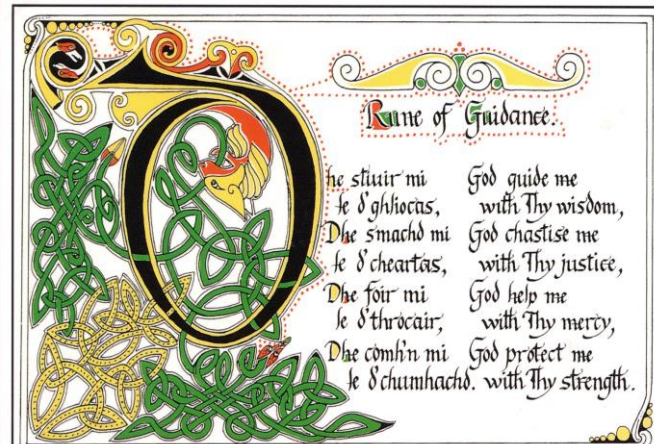 Rune of Guidance.
Dhe stiuir mi
le d'ghliocas,
Dhe smachd mi
le d'cheartas,
Dhe foir mi
le d'throcair,
Dhe comh'n mi
le d'chumhachd.
God guide me
with Thy wisdom,
God chastise me
with Thy justice,
God help me
with Thy mercy,
God protect me
with Thy strength.